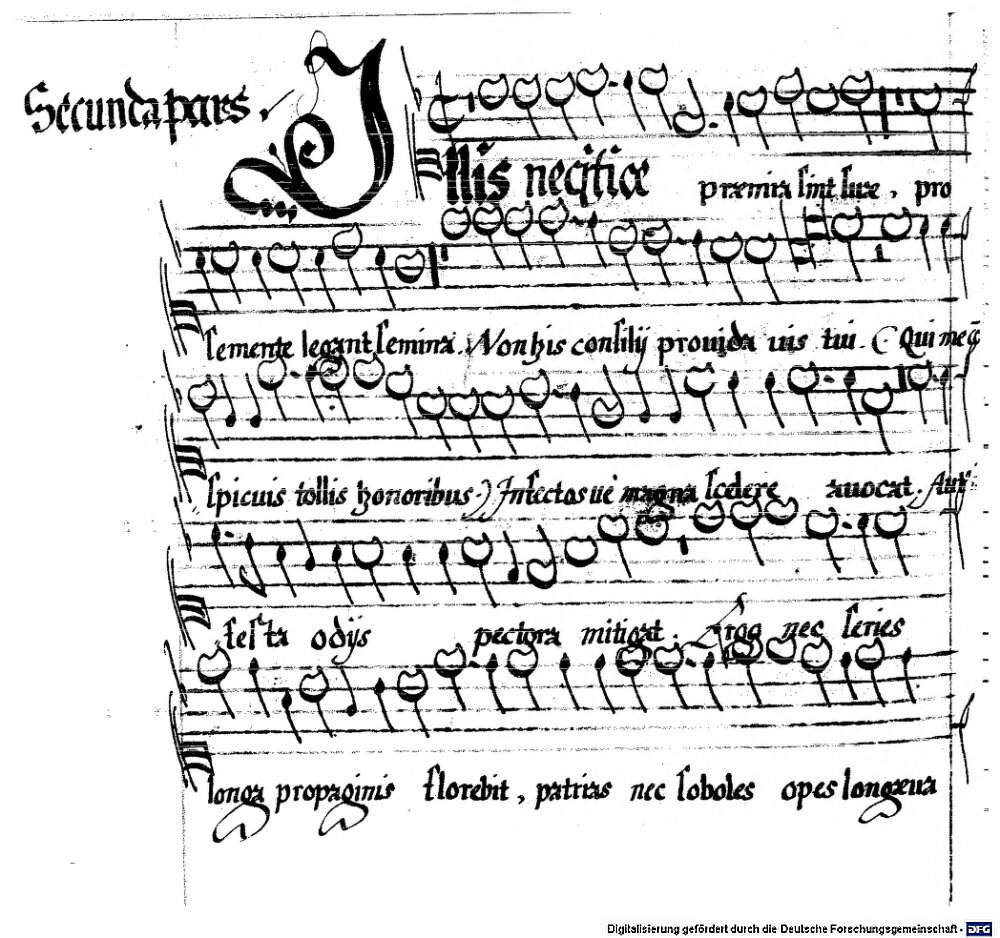 Secunda pars.
Illis neciticæ præmia sint suæ, pro
semente legant semina. Non his consilij prouida uis tui. (Qui me
spicuis tollis honoribus.) Infectos ue magna scelere auocat. Aut
festa odijs pectora mitigat. Ergo nec series
longa propaginis florebit, patrias nec soboles opes longæua
Digitalisierung gefördert durch die Deutsche Forschungsgemeinschaft - DFG